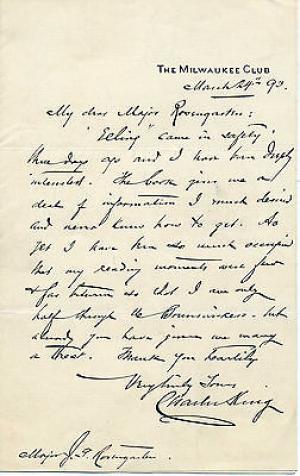 THE MILWAUKEE CLUB
March 24th 93.
My dear Major Rosengarten:
"Eelking" came in safely
three days ago and I have been deeply
interested. The book gives me a
deal of information I much desired
and never knew how to get. As
yet I have been so much occupied
that my reading moments were few
& far between so that I am only
half through the Brunswickers. but
already you have given me many
a treat. Thank you heartily
Very truly Yours
Charles King
Major J. G. Rosengarten.